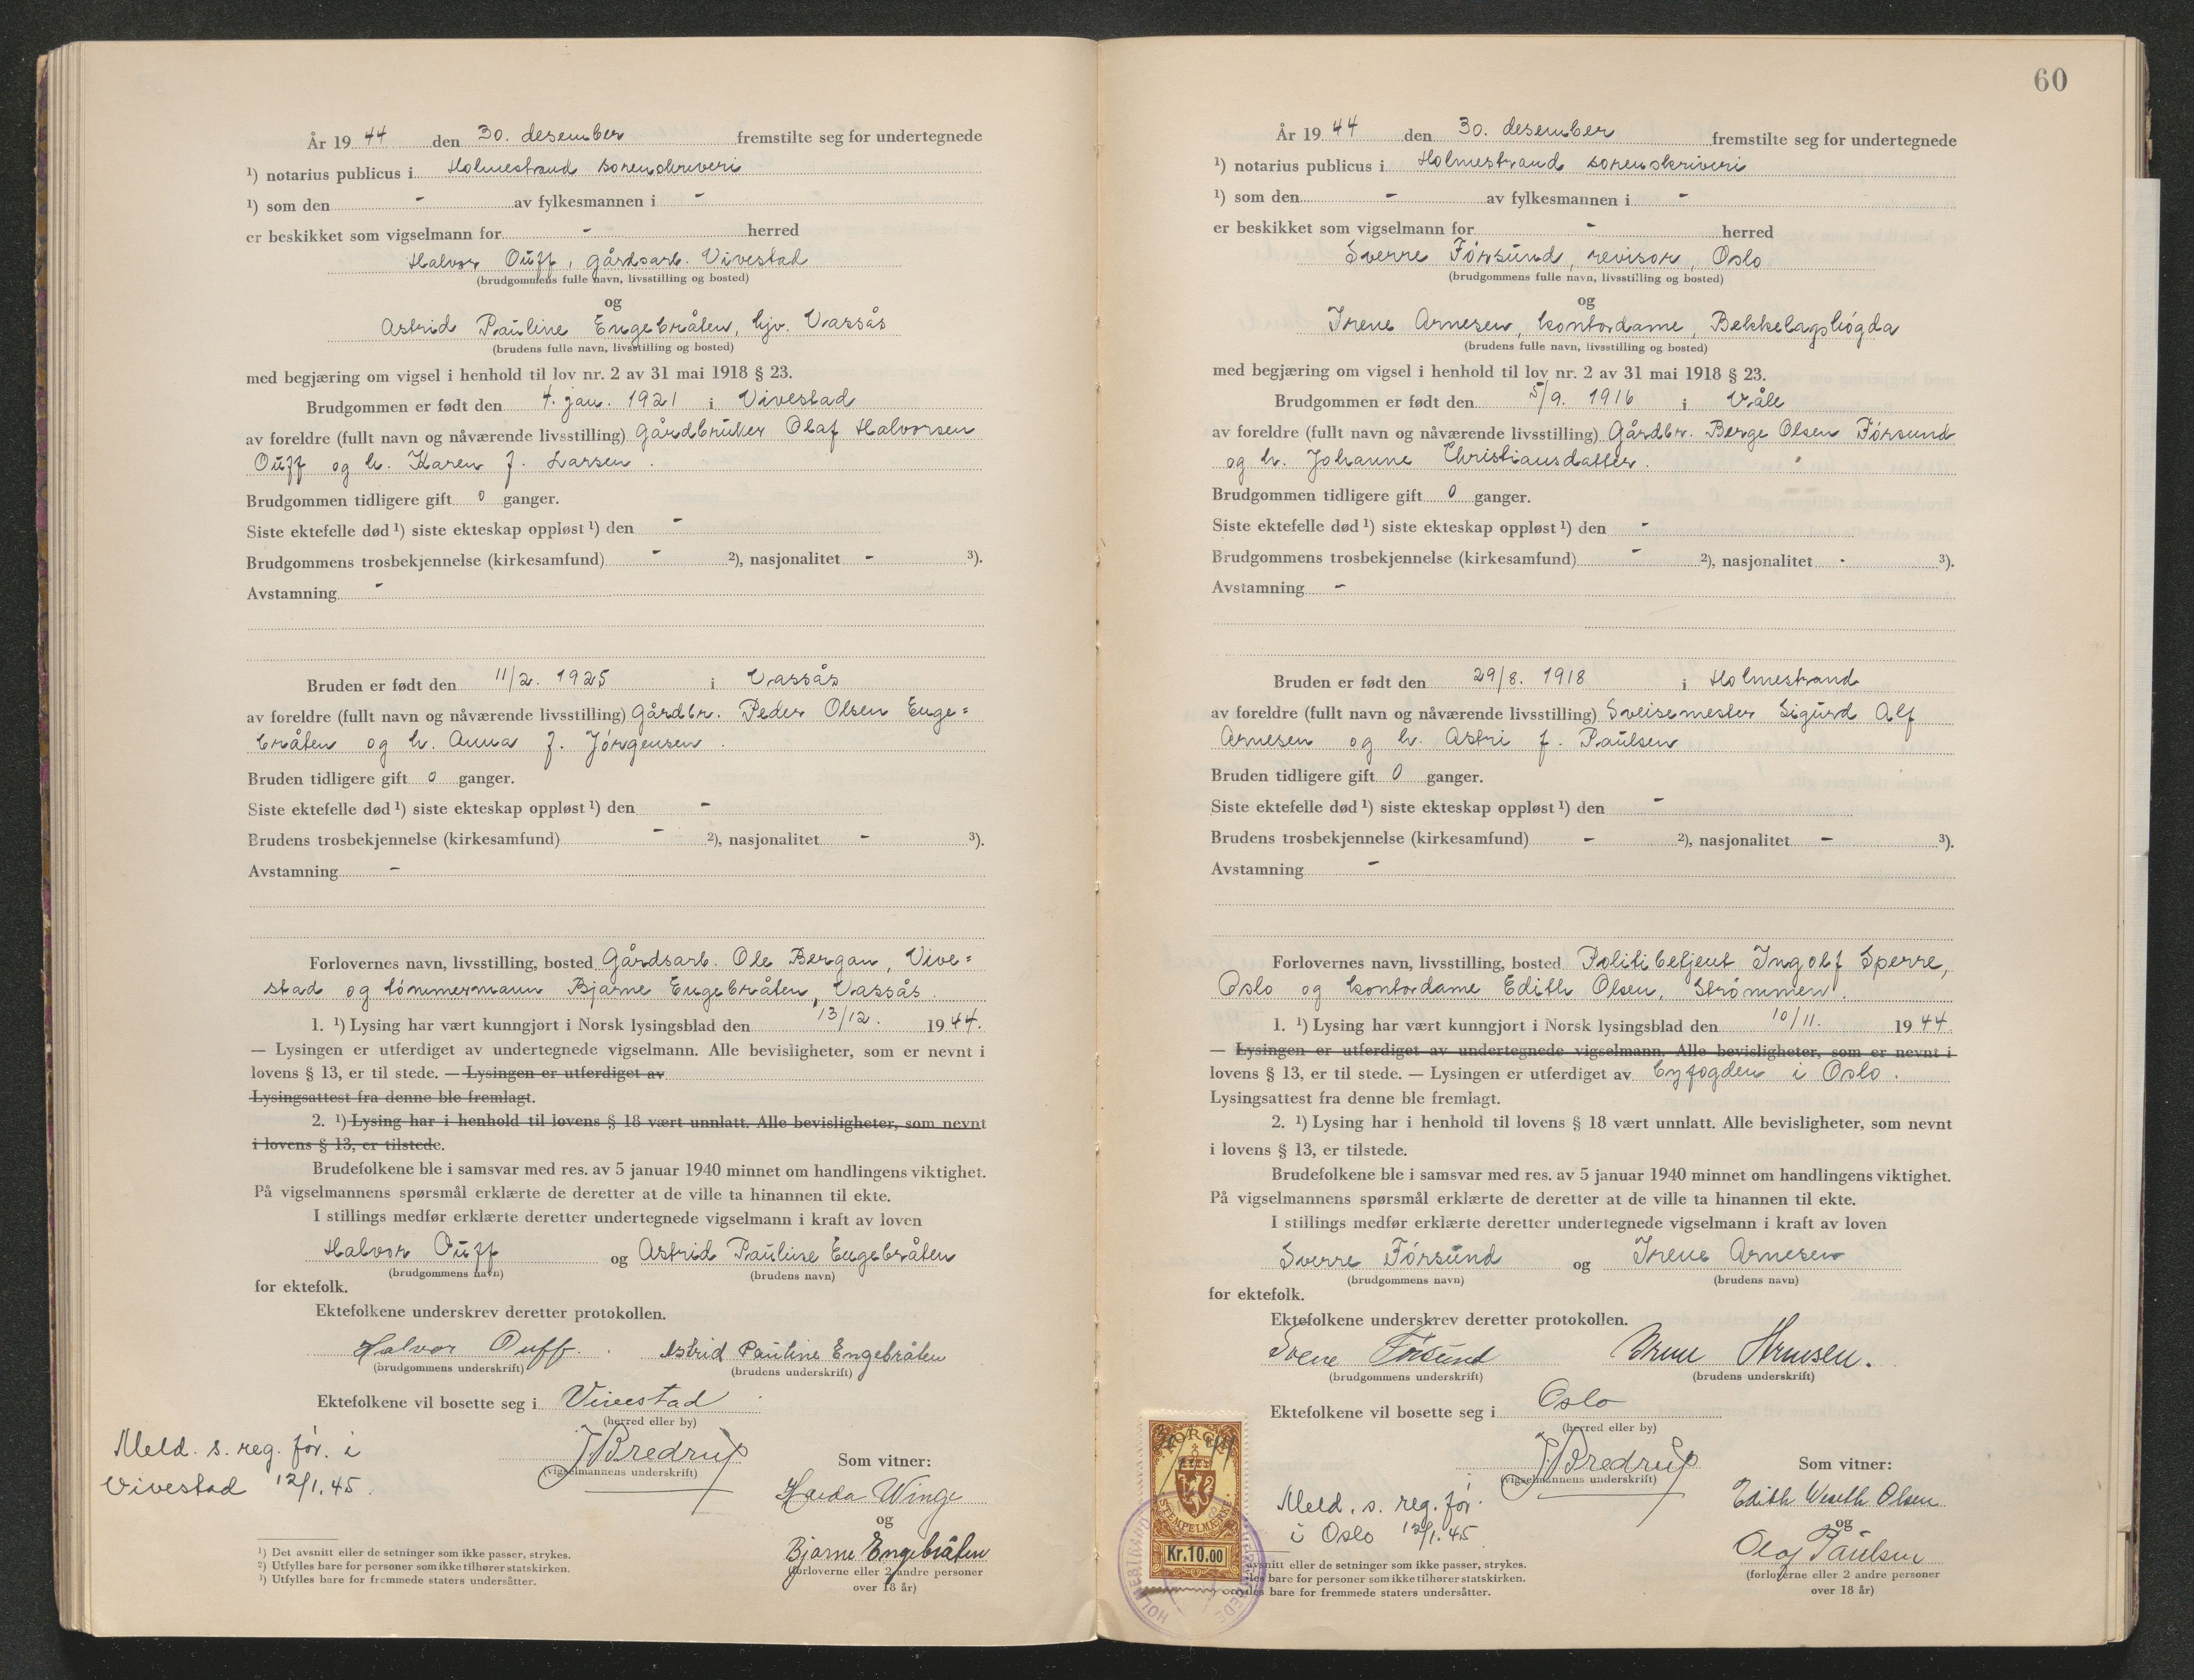 År 19 44 den 30. desember fremstilte seg for undertegnede
¹) notarius publicus i Holmestrand sorenskriveri
¹) som den - av fylkesmannen i -
er beskikket som vigselmann for - herred
Halvor Ouff, gårdsarb. Vivestad
(brudgommens fulle navn, livsstilling og bosted)
og
Astrid Pauline Engebråten, hjv. Vassås
(brudens fulle navn, livsstilling og bosted)
med begjæring om vigsel i henhold til lov nr. 2 av 31 mai 1918 § 23.
Brudgommen er født den 4. jan. 1921 i Vivestad
av foreldre (fullt navn og nåværende livsstilling) Gårdbruker Olaf Halvorsen
Ouff og h. Karen f. Larsen.
Brudgommen tidligere gift 0 ganger.
Siste ektefelle død ¹) siste ekteskap oppløst ¹) den -
Brudgommens trosbekjennelse (kirkesamfund) - ²), nasjonalitet - ³).
Avstamning -
Bruden er født den 11/2. 1925 i Vassås
av foreldre (fullt navn og nåværende livsstilling) Gårdbr. Peder Olsen Enge=
bråten og h. Anna f. Jórgensen.
Bruden tidligere gift 0 ganger.
Siste ektefelle død ¹) siste ekteskap oppløst ¹) den -
Brudens trosbekjennelse (kirkesamfund) - ²), nasjonalitet - ³).
Avstamning -
Forlovernes navn, livsstilling, bosted Gårdsarb. Ole Bergan, Vive=
stad og tómmermann Bjarne Engebråten, Vassås.
1. ¹) Lysing har vært kunngjort i Norsk lysingsblad den 13/12. 19 44.
— Lysingen er utferdiget av undertegnede vigselmann. Alle bevisligheter, som er nevnt i
lovens § 13, er til stede. — Lysingen er utferdiget av
Lysingsattest fra denne ble fremlagt.
2. ¹) Lysing har i henhold til lovens § 18 vært unnlatt. Alle bevisligheter, som nevnt
i lovens § 13, er tilstede.
Brudefolkene ble i samsvar med res. av 5 januar 1940 minnet om handlingens viktighet.
På vigselmannens spørsmål erklærte de deretter at de ville ta hinannen til ekte.
I stillings medfør erklærte deretter undertegnede vigselmann i kraft av loven
Halvor Ouff og Astrid Pauline Engebråten
(brudgommens navn) (brudens navn)
for ektefolk.
Ektefolkene underskrev deretter protokollen.
Halvor Ouff. Astrid Pauline Engebråten
(brudgommens underskrift) (brudens underskrift)
Ektefolkene vil bosette seg i Vivestad
(herred eller by)
Meld. s. reg. fór. i
Vivestad 12/1.45.
J Bredrup
(vigselmannens underskrift)
Som vitner:
Winge
og
Bjarne Engebråten
(forloverne eller 2 andre personer
over 18 år)
¹) Det avsnitt eller de setninger som ikke passer, strykes.
²) Utfylles bare for personer som ikke tilhører statskirken.
³) Utfylles bare for fremmede staters undersåtter.
60
År 19 44 den 30. desember fremstilte seg for undertegnede
¹) notarius publicus i Holmestrand sorenskriveri
¹) som den - av fylkesmannen i -
er beskikket som vigselmann for - herred
Sverre Fórsund, revisor, Oslo
(brudgommens fulle navn, livsstilling og bosted)
og
Irene Arnesen, kontordame, Bekkelagshógda
(brudens fulle navn, livsstilling og bosted)
med begjæring om vigsel i henhold til lov nr. 2 av 31 mai 1918 § 23.
Brudgommen er født den 5/9. 1916 i Våle
av foreldre (fullt navn og nåværende livsstilling) Gårdbr. Berge Olsen Fórsund
og h. Johanne Christiansdatter.
Brudgommen tidligere gift 0 ganger.
Siste ektefelle død ¹) siste ekteskap oppløst ¹) den -
Brudgommens trosbekjennelse (kirkesamfund) - ²), nasjonalitet - ³).
Avstamning -
Bruden er født den 29/8. 1918 i Holmestrand
av foreldre (fullt navn og nåværende livsstilling) Sveisemester Sigurd Alf
Arnesen og h. Astri f. Paulsen
Bruden tidligere gift 0 ganger.
Siste ektefelle død ¹) siste ekteskap oppløst ¹) den -
Brudens trosbekjennelse (kirkesamfund) - ²), nasjonalitet - ³).
Avstamning -
Forlovernes navn, livsstilling, bosted Politibetjent Ingolf Sperre,
Oslo og kontordame Edith Olsen, Strómmen.
1. ¹) Lysing har vært kunngjort i Norsk lysingsblad den 10/11. 19 44.
— Lysingen er utferdiget av undertegnede vigselmann. Alle bevisligheter, som er nevnt i
lovens § 13, er til stede. — Lysingen er utferdiget av byfogden i Oslo.
Lysingsattest fra denne ble fremlagt.
2. ¹) Lysing har i henhold til lovens § 18 vært unnlatt. Alle bevisligheter, som nevnt
i lovens § 13, er tilstede.
Brudefolkene ble i samsvar med res. av 5 januar 1940 minnet om handlingens viktighet.
På vigselmannens spørsmål erklærte de deretter at de ville ta hinannen til ekte.
I stillings medfør erklærte deretter undertegnede vigselmann i kraft av loven
Sverre Fórsund og Irene Arnesen
(brudgommens navn) (brudens navn)
for ektefolk.
Ektefolkene underskrev deretter protokollen.
Sverre Fórsund Irene Arnesen.
(brudgommens underskrift) (brudens underskrift)
Ektefolkene vil bosette seg i Oslo
(herred eller by)
J Bredrup
(vigselmannens underskrift)
Meld. s. reg. fór.
i Oslo 12/1.45
Som vitner:
Edith Weseth Olsen
og
Olaf Paulsen
(forloverne eller 2 andre personer
over 18 år)
NORGE
STEMPELMERKE
Kr.10.00
HOLMESTRAND
avsnitt eller de setninger som ikke passer, strykes.
les bare for personer som ikke tilhører statskirken.
les bare for fremmede staters undersåtter.